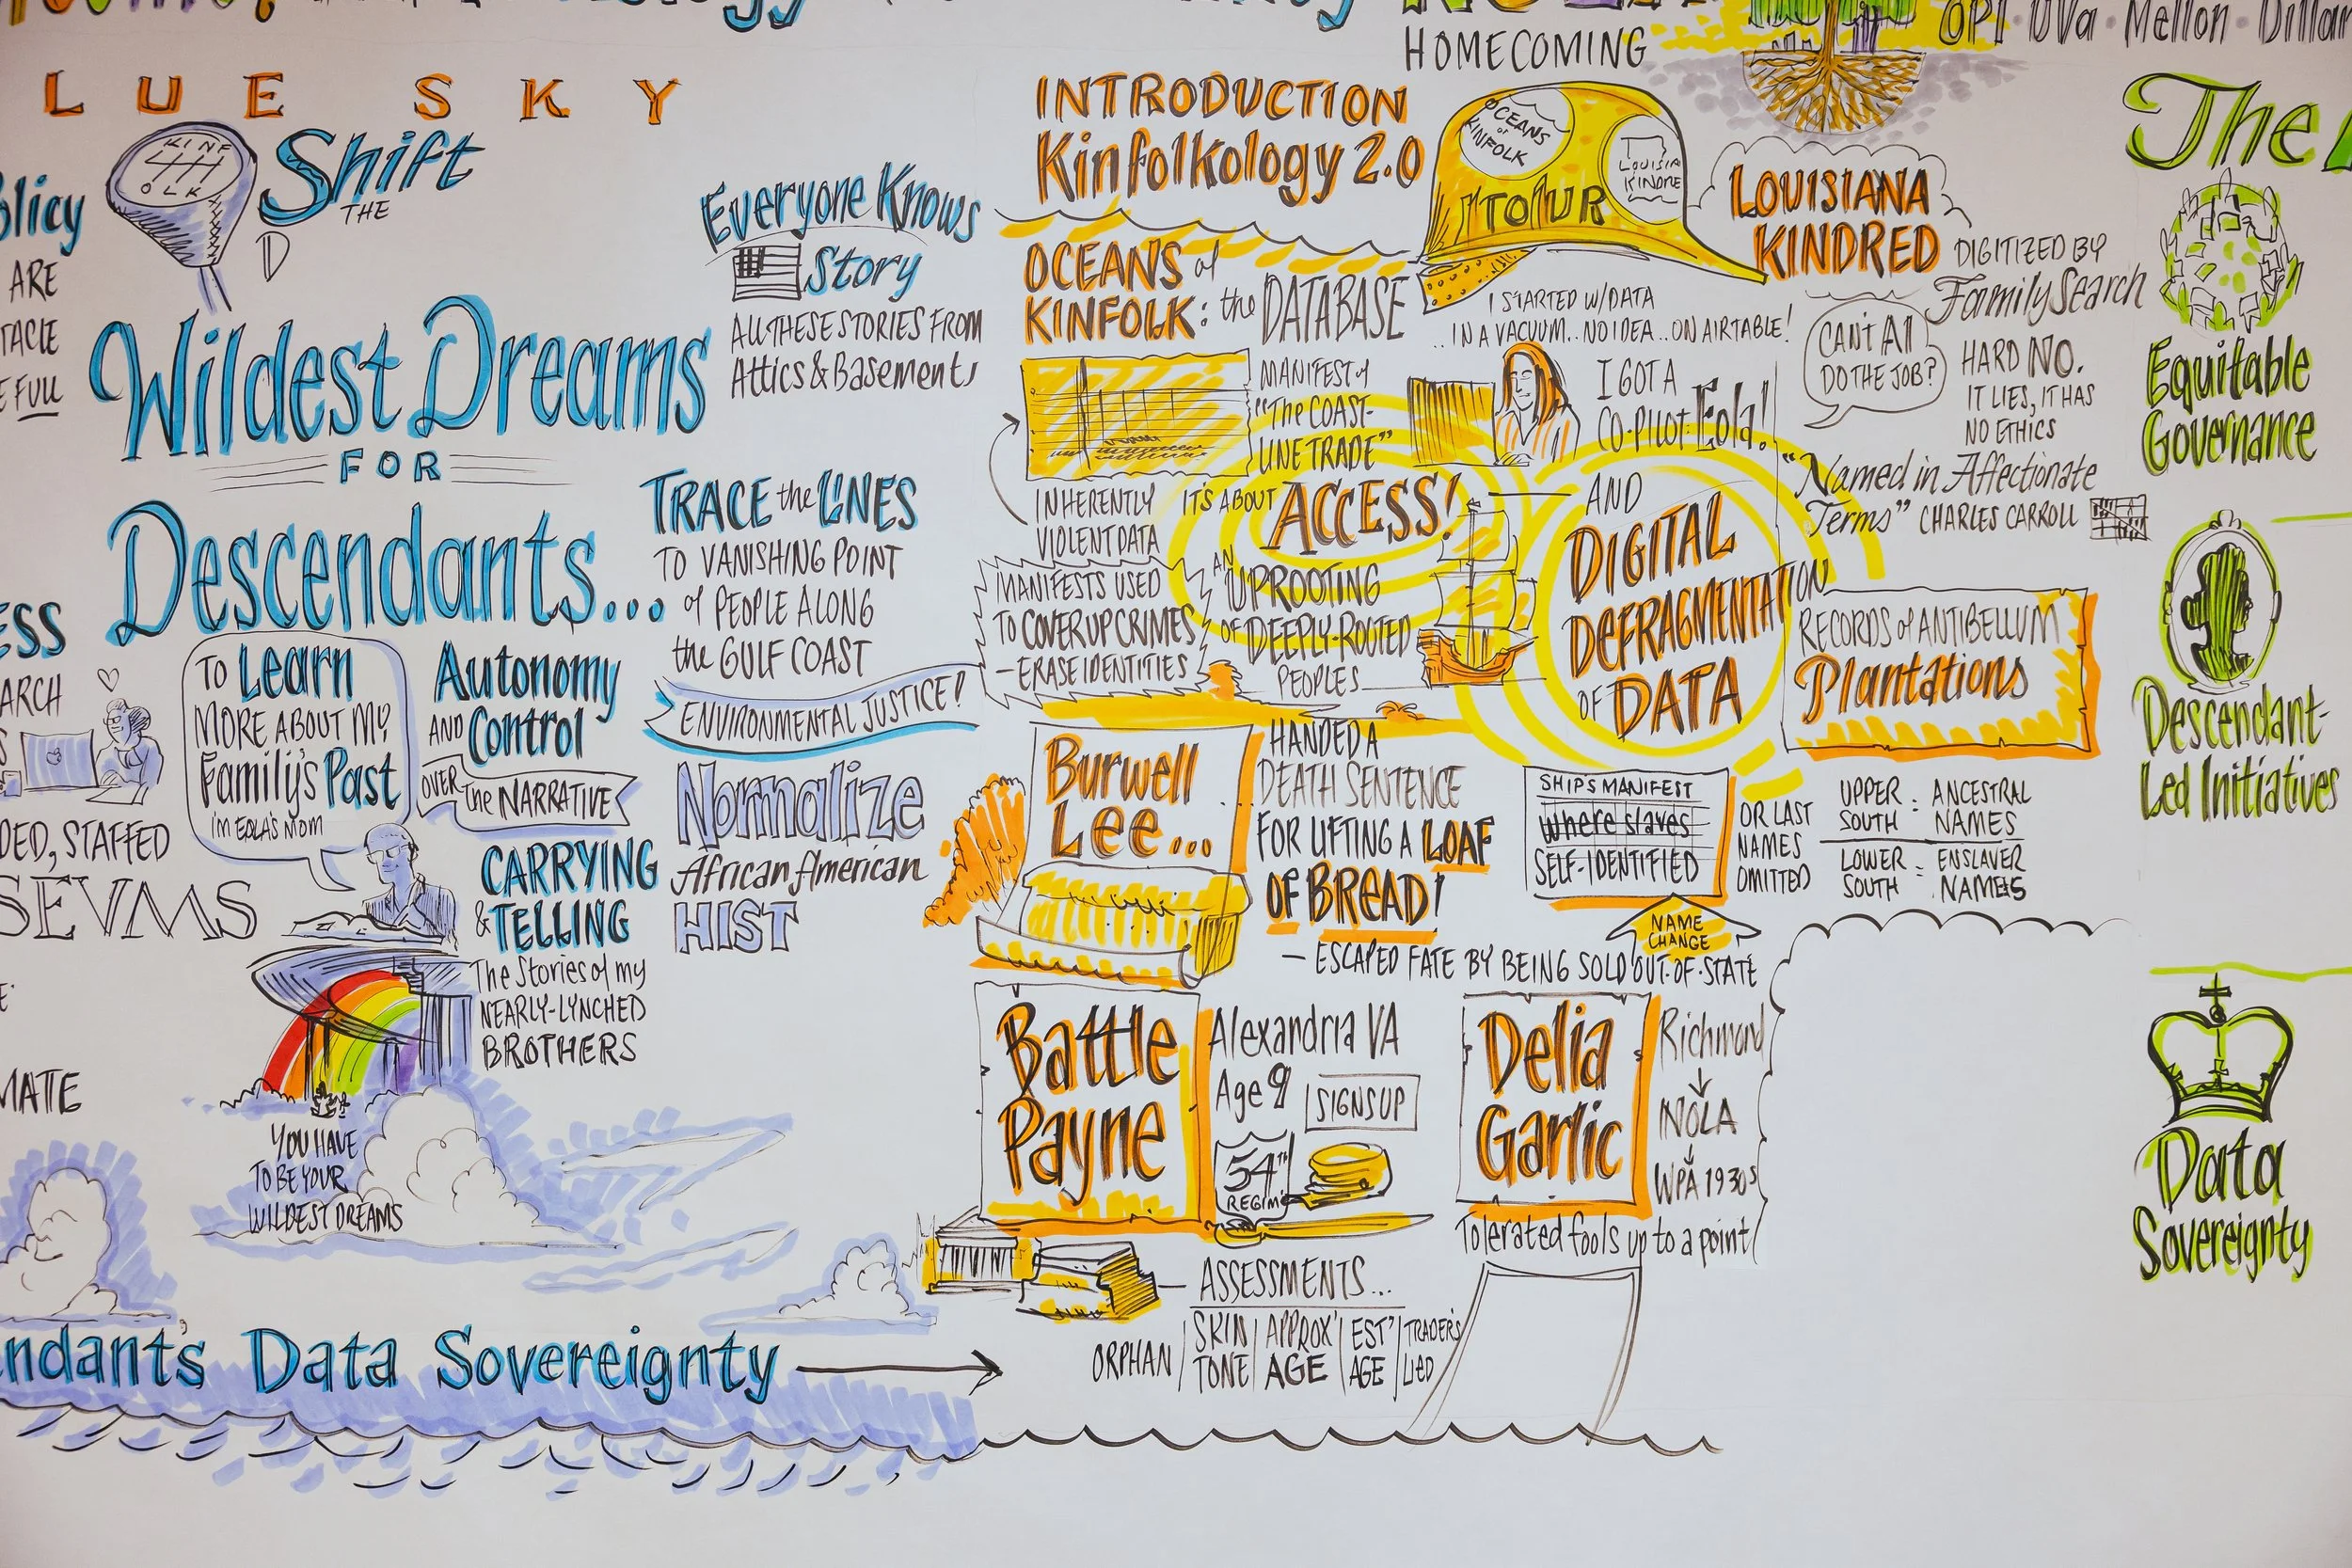 HOMECOMING
OPI · UVa · Mellon ·
LUE SKY
KINF
OLK
Shift
THE
D
Wildest Dreams
FOR
Descendants...
ARE
FULL
Everyone Knows
Story
ALL THESE STORIES FROM
Attics & Basements
TRACE the LINES
TO VANISHING POINT
of PEOPLE ALONG
the GULF COAST
ENVIRONMENTAL JUSTICE!
Normalize
African American
HIST
TO Learn
MORE ABOUT MY
Family's Past
I'M EOLA'S MOM
Autonomy
AND Control
OVER the NARRATIVE
CARRYING
& TELLING
The Stories of my
NEARLY-LYNCHED
BROTHERS
DED, STAFFED
SEVMS
MATE
YOU HAVE
TO BE YOUR
WILDEST DREAMS
ndant's Data Sovereignty
INTRODUCTION
Kinfolkology 2.0
OCEANS
of
KINFOLK
LOUISIA
KINDRE
TOUR
OCEANS of
KINFOLK: the DATABASE
I STARTED W/DATA
..IN A VACUUM...NO IDEA...ON AIRTABLE!
MANIFEST of
"The COAST-
LINE TRADE"
I GOT A
CO-PILOT: Eola!
INHERENTLY
VIOLENT DATA
IT'S ABOUT ACCESS!
MANIFESTS USED
TO COVER UP CRIMES
— ERASE IDENTITIES
AN UPROOTING
OF DEEPLY-ROOTED
PEOPLES
AND
DIGITAL
DEFRAGMENTATION
OF DATA
LOUISIANA
KINDRED
DIGITIZED BY
FamilySearch
CAN'T AI
DO THE JOB?
HARD NO.
IT LIES, IT HAS
NO ETHICS
"Named in Affectionate
Terms" CHARLES CARROLL
RECORDS of ANTIBELLUM
Plantations
Burwell
Lee...
HANDED A
DEATH SENTENCE
FOR LIFTING A LOAF
OF BREAD!
— ESCAPED FATE BY BEING SOLD OUT-OF-STATE
SHIP'S MANIFEST
Where slaves
SELF-IDENTIFIED
OR LAST
NAMES
OMITTED
NAME
CHANGE
UPPER SOUTH = ANCESTRAL NAMES
LOWER SOUTH = ENSLAVER NAMES
Battle
Payne
Alexandria VA
Age 9
SIGNS UP
54TH
REGIM'
Delia
Garlic
Richmond
NOLA
WPA 1930s
Tolerated fools up to a point
ASSESSMENTS...
ORPHAN | SKIN TONE | APPROX' AGE | EST' AGE | TRADERS LIED
The
Equitable
Governance
Descendant-
Led Initiatives
Data
Sovereignty